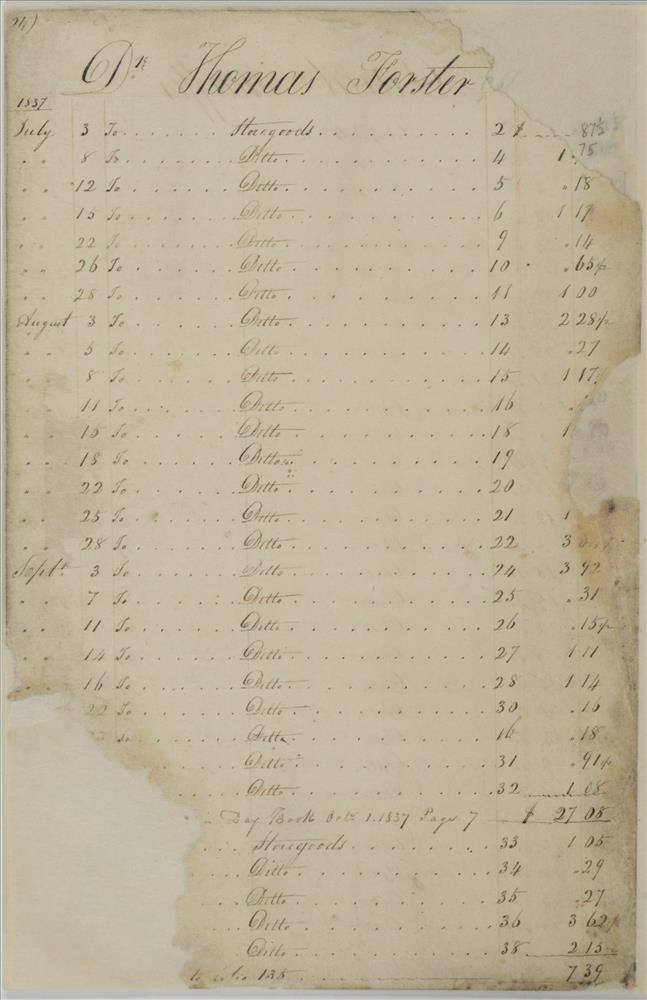 24)
Dr. Thomas Forster
1837
July 3 To Storegoods 2 $ 87½
" " 8 To Ditto 4 1 75
" " 12 To Ditto 5 " 18
" " 15 To Ditto 6 1 17
" " 22 To Ditto 9 " 14
" " 26 To Ditto 10 " 65½
" " 28 To Ditto 11 1 00
August 3 To Ditto 13 2 28½
" " 5 To Ditto 14 " 27
" " 8 To Ditto 15 1 17
" " 11 To Ditto 16 "
" " 15 To Ditto 18 1
" " 18 To Ditto 19
" " 22 To Ditto 20
" " 25 To Ditto 21 1
" " 28 To Ditto 22 3
Sept. 3 To Ditto 24 3 92
" " 7 To Ditto 25 " 31
" " 11 To Ditto 26 " 15½
" " 14 To Ditto 27 1 11
" " 16 To Ditto 28 1 14
22 To Ditto 30 " 16
To Ditto 16 " 18
Ditto 31 " 91½
Ditto 32 1 08
Day Book Octr. 1. 1837 Page 7 $ 27 08
Storegoods 33 1 05
Ditto 34 " 29
Ditto 35 " 27
Ditto 36 3 62½
Ditto 38 2 15
to folio 135 7 39